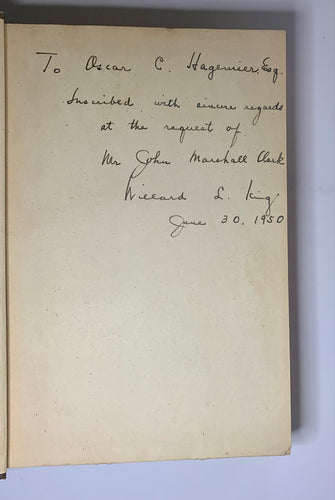 To Oscar C. Hagemier, Esq.
Inscribed with sincere regards
at the request of
Mr John Marshall Clark
Willard L. King
June 30, 1950